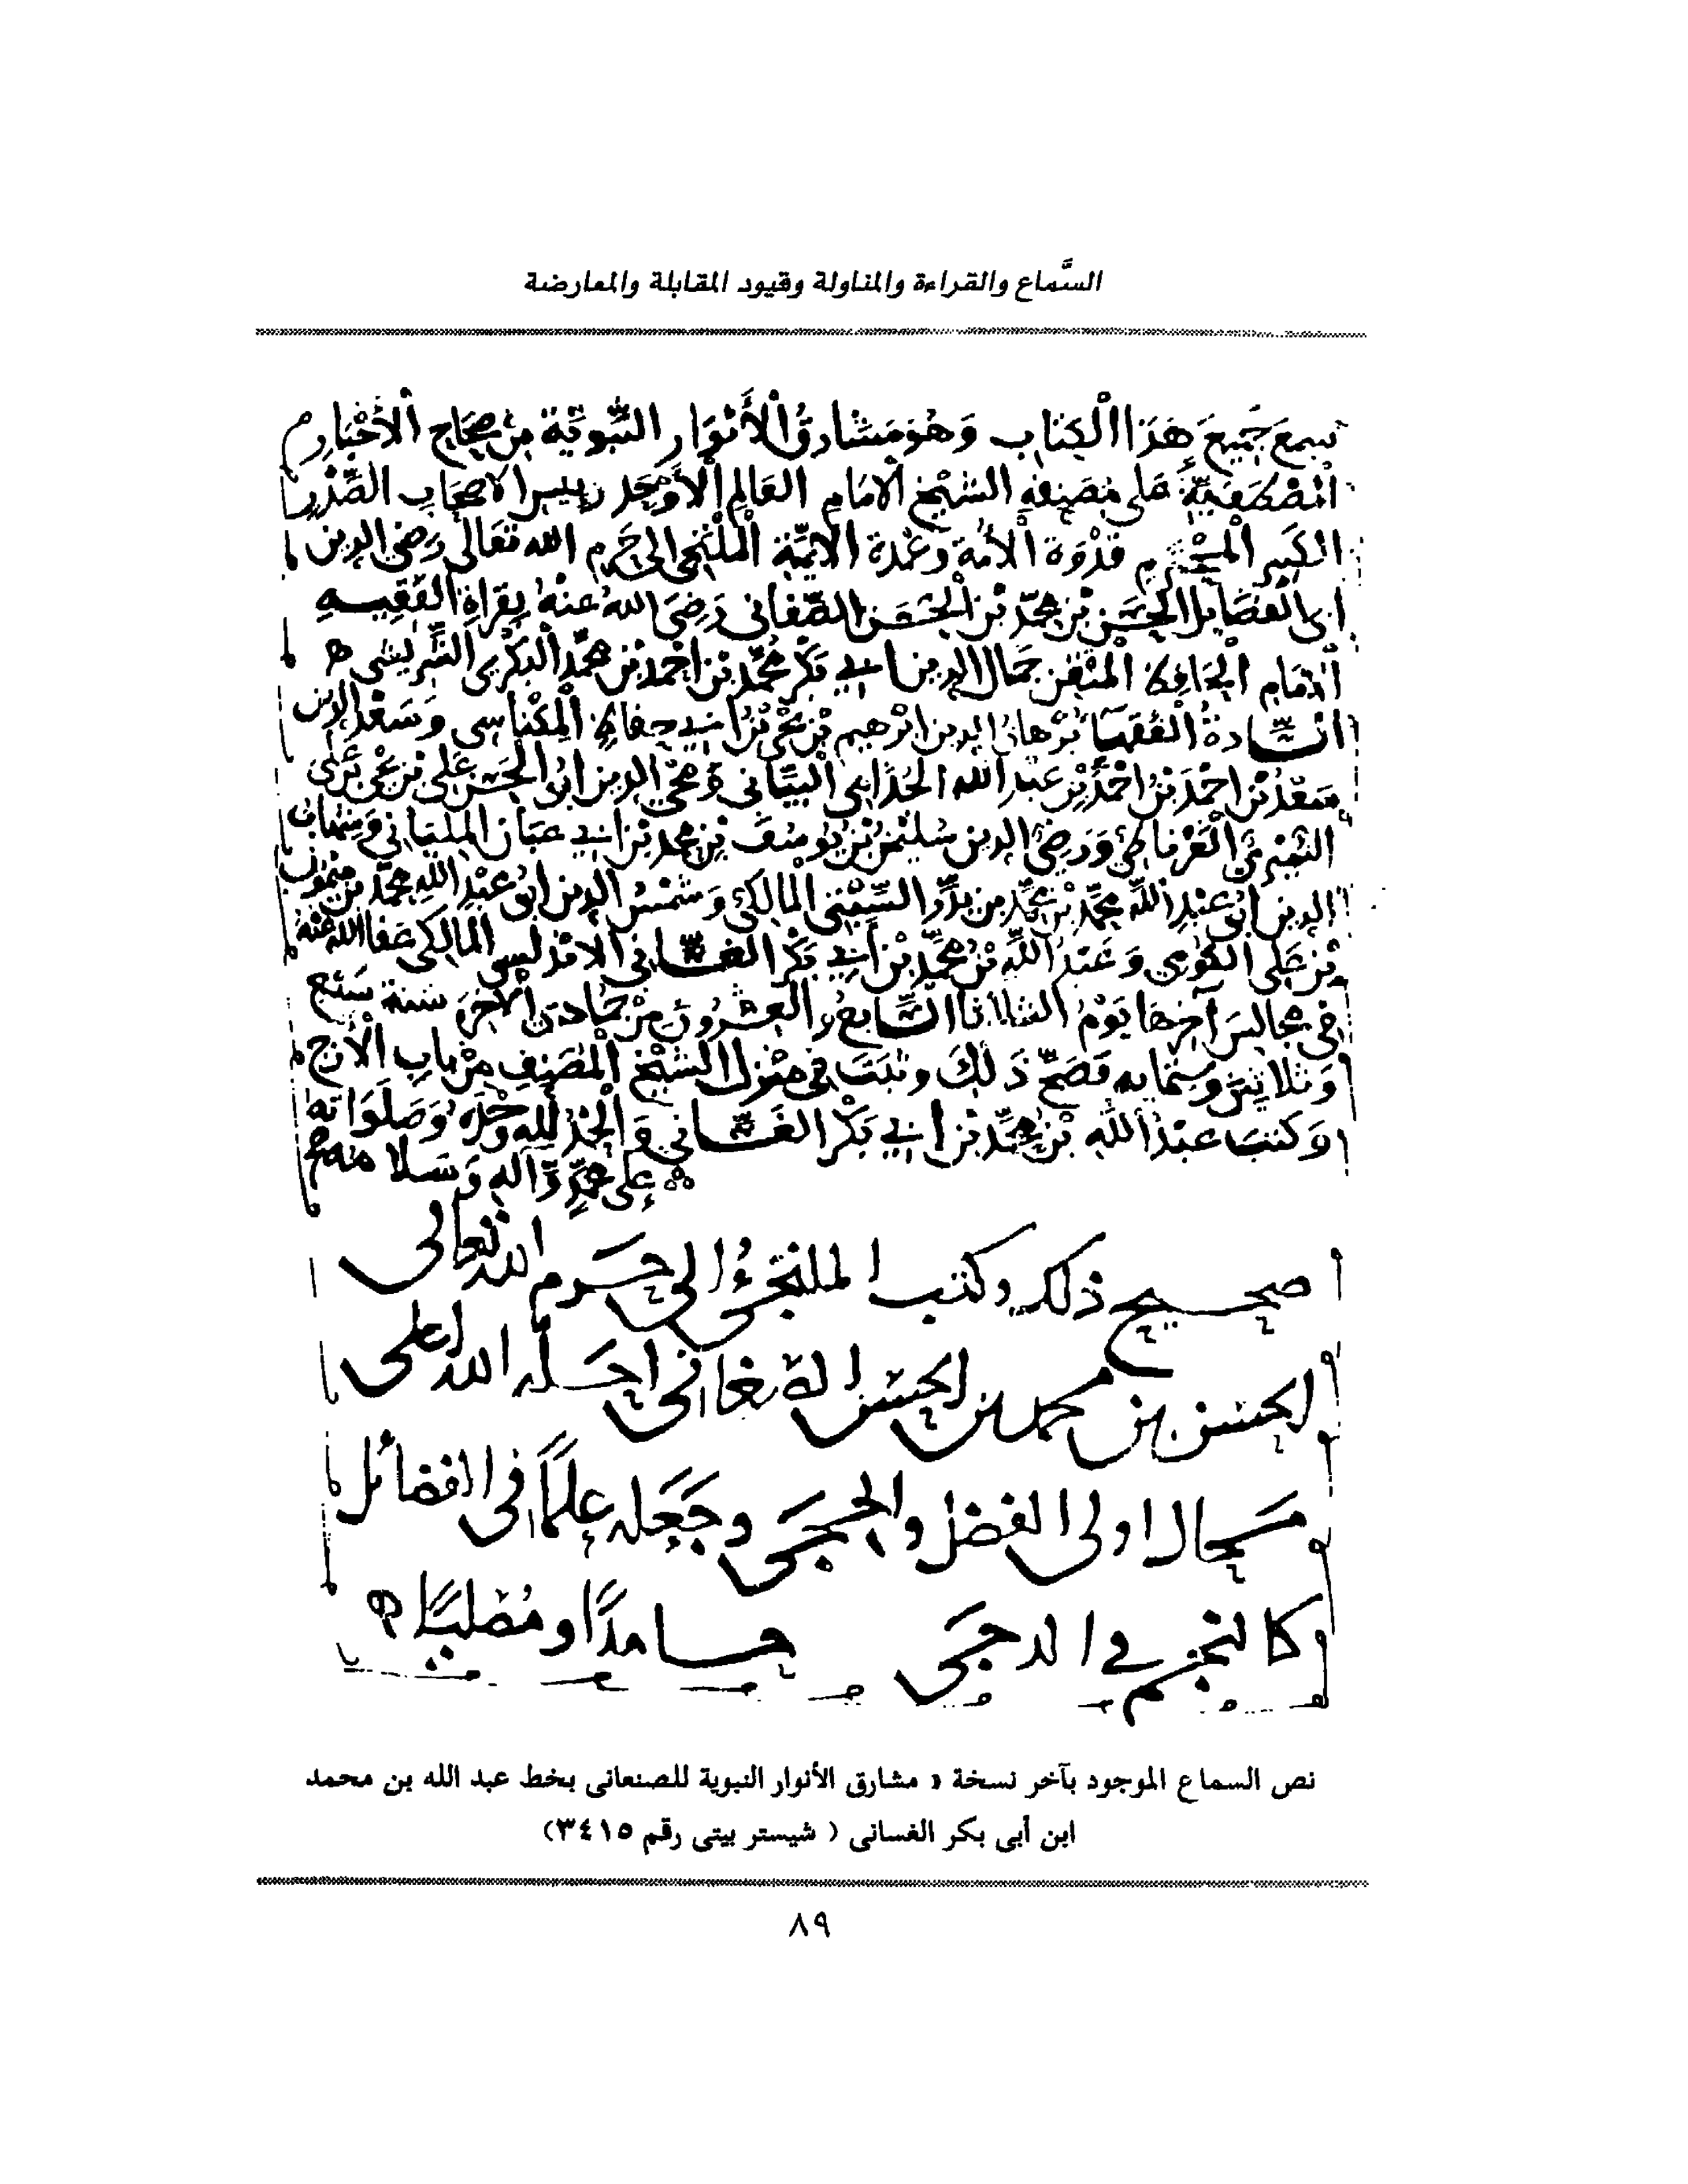 السَّماع والقراءة والمناولة وقيود المقابلة والمعارضة
سمع جَمِيعَ هَذَا الْكِتَابِ وَهُوَ مَشَارِقُ الْأَنْوَارِ النَّبَوِيَّة مِنْ صِحَاحِ الْأَخْبَارِ
الْمُصْطَفَوِيَّة عَلى مُصَنِفِهِ الشَّيْخِ الْامَامِ العَالِمِ الْأَوْحَد رييس الاصْحَابِ الصَّدْرِ
الكَبِيرِ الْمُحْتَرَمِ قُدْوَة الْأُمَّة وَعُمْدَة الْايمَّة الْمُلْتَجِي الى حَرَمِ الله تعَالَى رَضِيِّ الدين
ابي الفضَايِل الْحَسَن بْن مُحَمَّد بْن الْحَسَن الصَّغاني رَضِيَ اللهُ عَنْهُ بِقِرَاةِ الْفَقِيهِ
الْامَامِ الْحَافِظ الْمُتْقِن جَمَال الدين ابي بَكْر مُحَمَّد بْن احْمَد بْن مُحَمَّد الْبَكْرِي الشَّرِيشي
السَّادَةُ الْفُقَهَا بُرْهَان الدين ابْرهيم بْن يَحْيَى بْن ابي حفاظ الْمِكْنَاسِي وَسَعْد الدين
سَعْدُ بْن احْمَدَ بْن احْمَدَ بْن عَبْد الله الجُذَامي الْبَيَّاني وَمحيي الدين ابُو الْحَسَن عَلى بْن يَحْيَى بْن عَلى
الْغَرْنَاطِي وَرَضِيّ الدين سُلَيْمن بْن يُوسُف بْن محمد بْن ابي الملياني وَشِهَاب
الدين ابُو عَبْدِ اللَّه مُحَمَّد بْن مُحَمَّد بن السَّبْتي الْمَالِكِي وَشَمْسُ الدين ابُو عَبْدِ اللهِ مُحَمَّد بن مَيْمُون
بْن عَلى وَعَبْدُ اللَّه بْن مُحَمَّد بْن أَبي بَكْر الْغسَّاني الانْدَلسِي الْمَالِكِي عَفَا اللهُ عَنْهُ
فِي مَجَالِسَ آخِرُهَا يَوْمُ الثلاثا السَّابِعُ وَالْعِشْرُونَ مِنْ جُمَادَى الْآخِرَةِ سَنَة سَبْع
وَثَلاثِينَ وسِتمايه فَصَحَّ ذَلِكَ وثَبَتَ فِي مَنْزِل الشَّيْخِ الْمُصَنِفِ مِنْ بَابِ الْأَزَج
وَكَتبَ عبْدُ اللَّهِ بْنُ مُحَمَّد بْن ابي بَكْر الغَسَّاني وَالْحَمْدُ لِلَّهِ وَحْدَهُ وَصَلَوَاتهُ
عَلى مُحَمَّدٍ وَآلِهِ وَسَلَامُهُ
صحيح ذلك وكتب الملتجئُ الى حَرم الله تعالى
الحسن بن محمد بن الحسن الصغانى احَلّه الله تعالى
مَحال اولى الفضل والحِجَى وجَعَله عَلَمًا فى الفضائل
كالنجم في الدجَى حامدًا ومُصلِيًا
نص السماع الموجود بآخر نسخة « مشارق الأنوار النبوية للصنعانى بخط عبد الله بن محمد
ابن أبى بكر الغسانى ( شيستر بيتى رقم ٣٤١٥)
٨٩